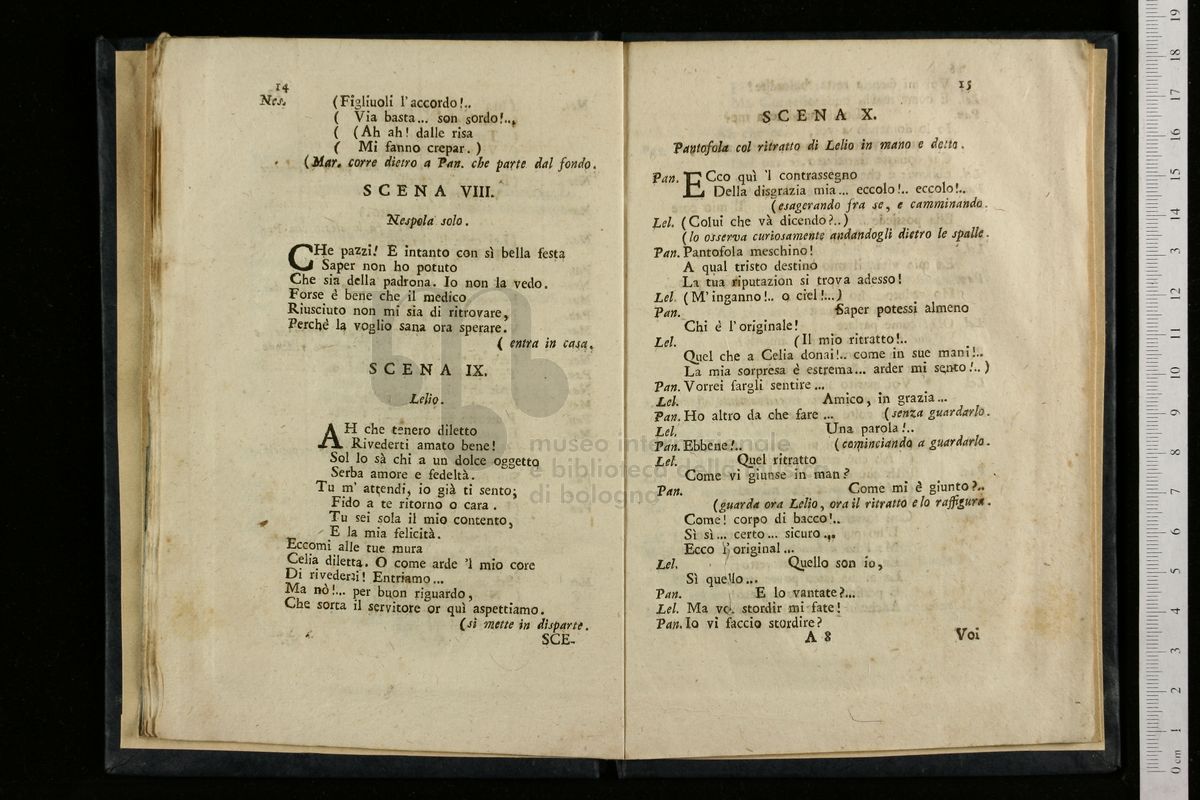 14
Nes. (Figliuoli l'accordo!..
( Via basta... son sordo!..,
( (Ah ah! dalle risa
( Mi fanno crepar. )
(Mar. corre dietro a Pan. che parte dal fondo.
SCENA VIII.
Nespola solo.
CHe pazzi! E intanto con sì bella festa
Saper non ho potuto
Che sia della padrona. Io non la vedo.
Forse è bene che il medico
Riusciuto non mi sia di ritrovare,
Perchè la voglio sana ora sperare.
( entra in casa.
SCENA IX.
Lelio.
AH che tenero diletto
Rivederti amato bene!
Sol lo sà chi a un dolce oggetto
Serba amore e fedeltà.
Tu m' attendi, io già ti sento;
Fido a te ritorno o cara.
Tu sei sola il mio contento,
E la mia felicità.
Eccomi alle tue mura
Celia diletta. O come arde 'l mio core
Di riverderti! Entriamo...
Ma nò!... per buon riguardo,
Che sorta il servitore or quì aspettiamo.
(si mette in disparte.
SCE-
15
SCENA X.
Pantofola col ritratto di Lelio in mano e detto.
Pan. ECco quì 'l contrassegno
Della disgrazia mia... eccolo!.. eccolo!..
(esagerando fra se, e camminando.
Lel. (Colui che và dicendo?..)
(lo osserva curiosamente andandogli dietro le spalle.
Pan. Pantofola meschino!
A qual tristo destino
La tua riputazion si trova adesso!
Lel. (M'inganno!.. o ciel!...)
Pan. Saper potessi almeno
Chi è l'originale!
Lel. (Il mio ritratto!..
Quel che a Celia donai!.. come in sue mani!..
La mia sorpresa è estrema... arder mi sento!..)
Pan. Vorrei fargli sentire...
Lel. Amico, in grazia...
Pan. Ho altro da che fare ... (senza guardarlo.
Lel. Una parola!..
Pan. Ebbene!.. (cominciando a guardarlo.
Lel. Quel ritratto
Come vi giunse in man?
Pan. Come mi è giunto?..
(guarda ora Lelio, ora il ritratto e lo raffigura.
Come! corpo di bacco!..
Sì sì... certo... sicuro...
Ecco l'original...
Lel. Quello son io,
Sì quello...
Pan. E lo vantate?...
Lel. Ma voi stordir mi fate!
Pan. Io vi faccio stordire?
A 8 Voi
museo internazionale
e biblioteca della musica
di bologna
19
18
17
16
15
14
13
12
11
10
9
8
7
6
5
4
3
2
1
0 cm